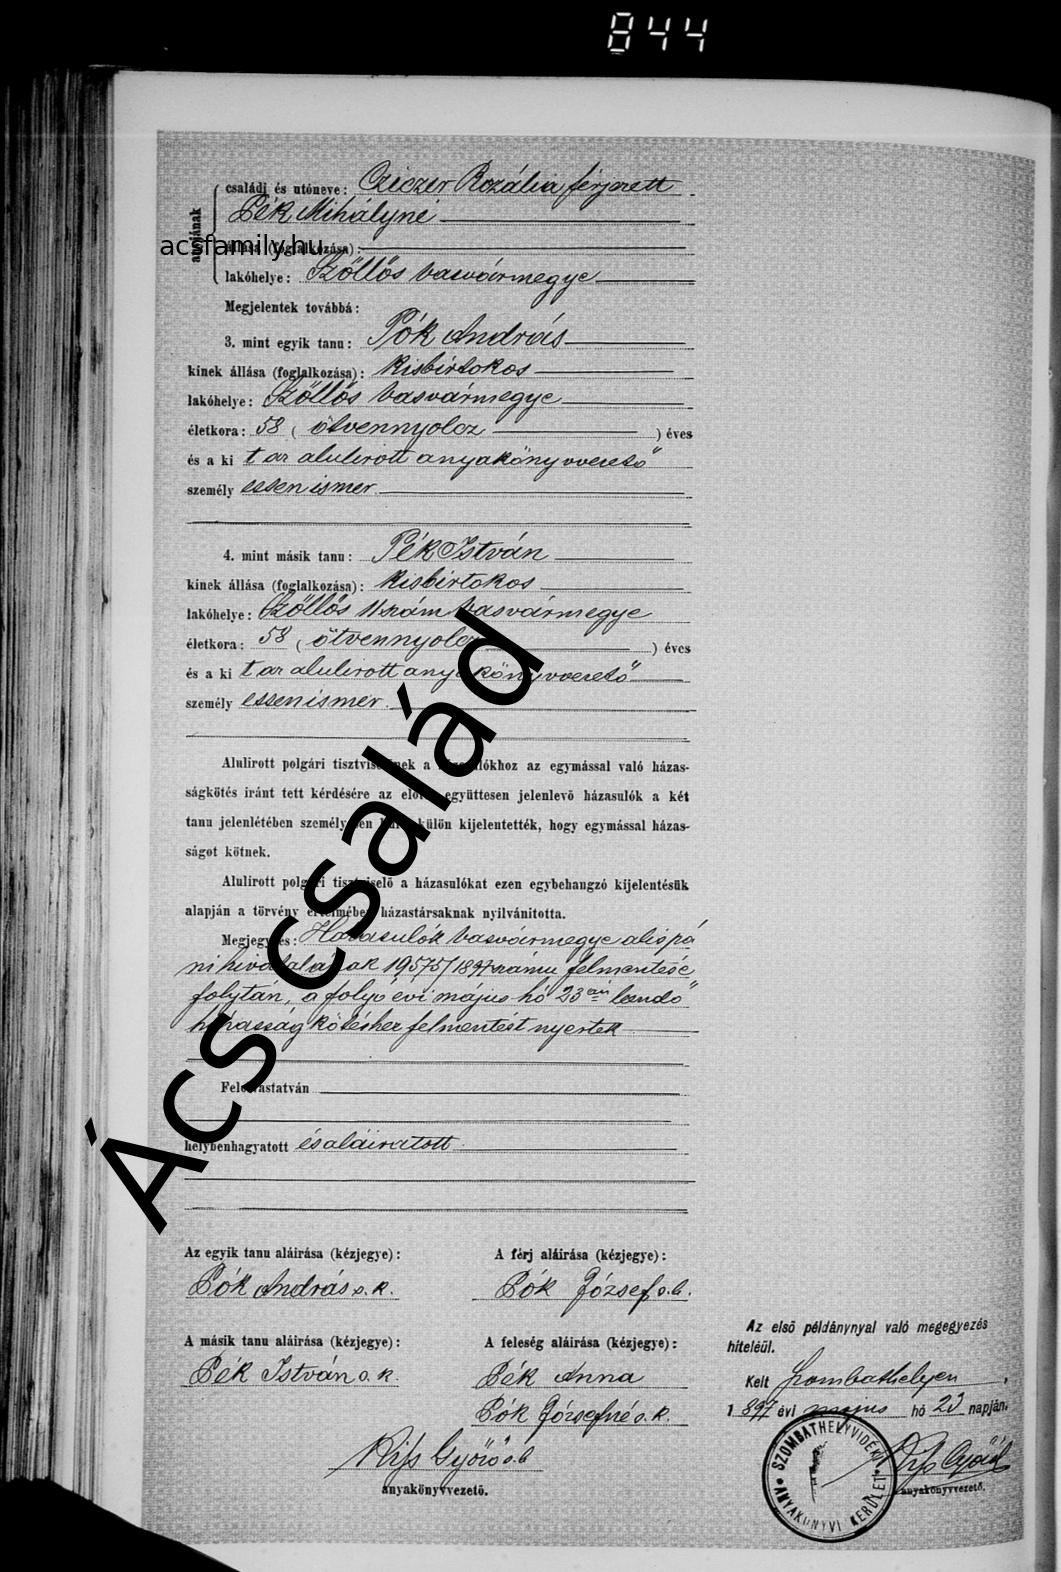 844
anyjának
családi és utóneve: Cziczer Rozália férjezett
Pék Mihályné
állása (foglalkozása):
acsfamily.hu
lakóhelye: Szőllős vasvármegye
Megjelentek továbbá:
3. mint egyik tanu: Pók András
kinek állása (foglalkozása): kisbirtokos
lakóhelye: Szőllős vasvármegye
életkora: 58 ( ötvennyolcz ) éves
és a ki t az alulirott anyakönyvvezető
személy essen ismer
4. mint másik tanu: Pék István
kinek állása (foglalkozása): kisbirtokos
lakóhelye: Szőllős 11 szám vasvármegye
életkora: 58 ( ötvennyolcz ) éves
és a ki t az alulirott anyakönyvvezető
személy essen ismer
Alulirott polgári tisztviselőnek a házasulókhoz az egymással való házas-
ságkötés iránt tett kérdésére az előtte együttesen jelenlevő házasulók a két
tanu jelenlétében személyesen külön kijelentették, hogy egymással házas-
ságot kötnek.
Alulirott polgári tisztviselő a házasulókat ezen egybehangzó kijelentésük
alapján a törvény értelmében házastársaknak nyilvánitotta.
Megjegyzés: Házasulók vasvármegye alispá
ni hivatalának 19575/1897 számu felmentése
folytán, a folyó évi május hó 23 án leendő
házasság kötéshez felmentést nyertek
Felolvastatván
helybenhagyatott és aláiratott
Ács család
Az egyik tanu aláirása (kézjegye): A férj aláirása (kézjegye):
Pók András s. k. Pók József s. k.
A másik tanu aláirása (kézjegye): A feleség aláirása (kézjegye):
Pék István s. k. Pék Anna
Pók Józsefné s. k.
Kiss Győző s. k.
anyakönyvvezető.
Az első példánynyal való megegyezés
hiteléül.
Kelt Szombathelyen,
1897 évi május hó 23 napján.
Kiss Győző
anyakönyvvezető.
SZOMBATHELYVIDÉKI
ANYAKÖNYVI KERÜLET